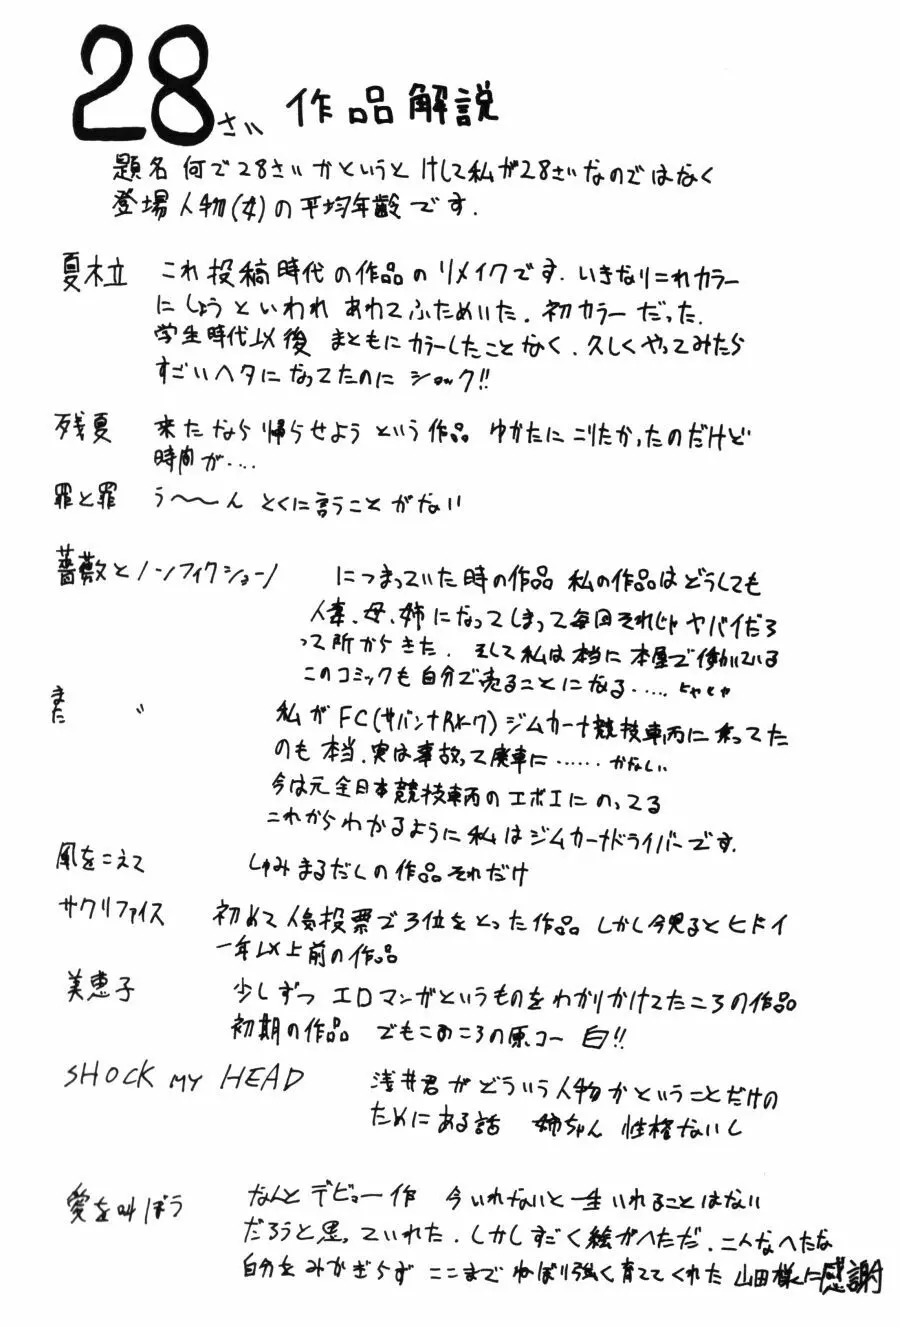 28さい 作品解説
題名 何で28さいかというと けして私が28さいなのではなく
登場人物(女)の平均年齢です.
夏木立 これ投稿時代の作品のリメイクです. いきなりこれカラー
にしようといわれ あわてふためいた. 初カラーだった.
学生時代以後 まともにカラーしたことなく. 久しくやってみたら
すごいヘタになってたのにショック!!
残夏 来たなら帰らせようという作品 ゆかたにこりたかったのだけど
時間が....
罪と罪 う〜〜ん とくに言うことがない
薔薇とノンフィクション につまっていた時の作品 私の作品はどうしても
人妻、母、姉になってしまって毎回それじゃヤバイだろ
って所からきた. そして私は本当に本屋で働いている
このコミックも自分で売ることになる..... ヒャヒャ
また 〃 私がFC(サバンナRX-7)ジムカーナ競技車両に乗ってた
のも本当. 実は事故って廃車に...... かなしい
今は元全日本競技車両のエボIにのってる
これからわかるように私はジムカーナドライバーです.
風をこえて しゅみまるだしの作品それだけ
サクリファイス 初めて人気投票で3位をとった作品 しかし今見るとヒドイ
一年以上前の作品
美恵子 少しずつ エロマンガというものをわかりかけてたころの作品
初期の作品 でもこのころの原コー 白!!
SHOCK MY HEAD 浅井君がどういう人物かということだけの
ためにある話 姉ちゃん 性格ないし
愛を叫ぼう なんとデビュー作 今いれないと一生いれることはない
だろうと思っていれた. しかしすごく絵がへただ. こんなへたな
自分をみかぎらず ここまでねばり強く育ててくれた 山田様に感謝